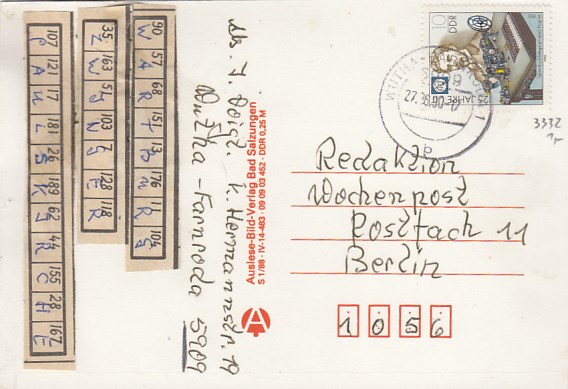 107 121 17 181 26 189 62 44 155 28 167
P A U L S K I R C H E
35 163 51 103 7 128 118
Z W I N G E R
90 57 68 151 13 176 11 104
W A R T B U R G
Abs. J. Voigt. K. Herrmannstr. 19
Wutha-Farnroda 5909
Auslese-Bild-Verlag Bad Salzungen
S 1/88 · IV-14-483 · 09 09 03 452 · DDR 0,25 M
10
DDR
25 JAHRE
3372
Redaktion
Wochenpost
Postfach 11
Berlin
1056